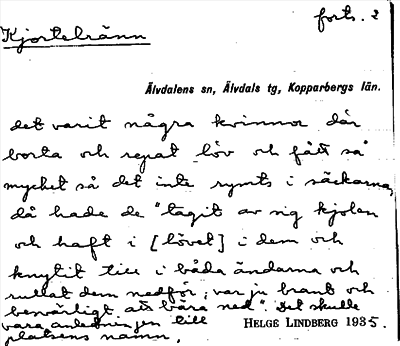 forts. 2
Kjortelränn
Älvdalens sn, Älvdals tg, Kopparbergs län.
det varit några kvinnor där
borta och repat löv och fått så
mycket så det inte rymts i säckarna,
då hade de "tagit av sig kjolen
och haft i [lövet] i dem och
knytit till i båda ändarna och
rullat dem nedför; var ju brant och
besvärligt att bära ned". Det skulle
vara anledningen till
platsens namn.
HELGE LINDBERG 1935.